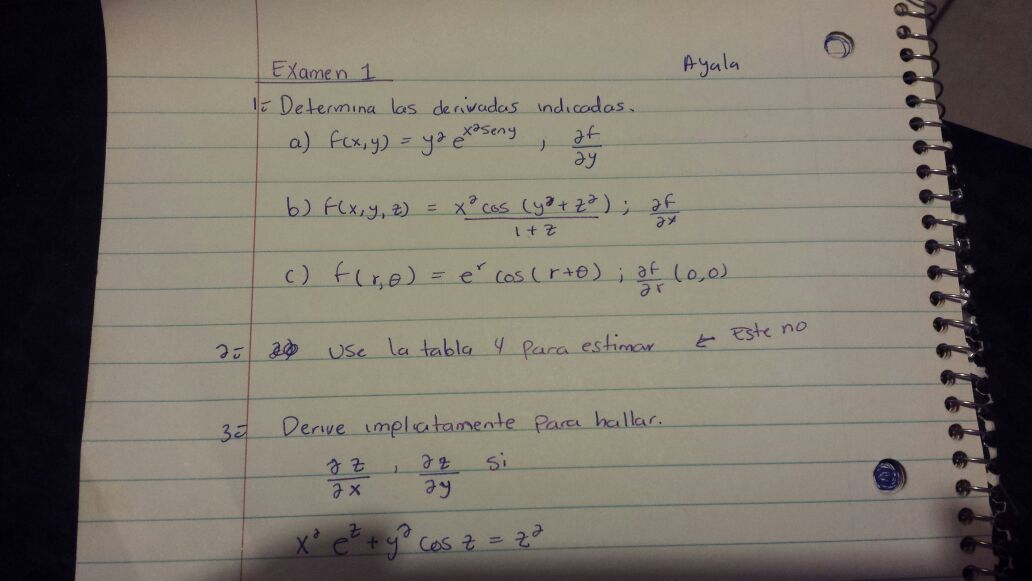 Examen 1 Ayala
1= Determina las derivadas indicadas.
a) f(x,y) = y² e^(x² sen y) , ∂f/∂y
b) f(x,y,z) = x² cos (y² + z²) / 1+z ; ∂f/∂x
c) f(r,θ) = e^r cos(r+θ) ; ∂f/∂r (0,0)
2= Use la tabla 4 para estimar ← Este no
3= Derive implicatamente para hallar.
∂z/∂x , ∂z/∂y si
x² e^z + y² cos z = z²